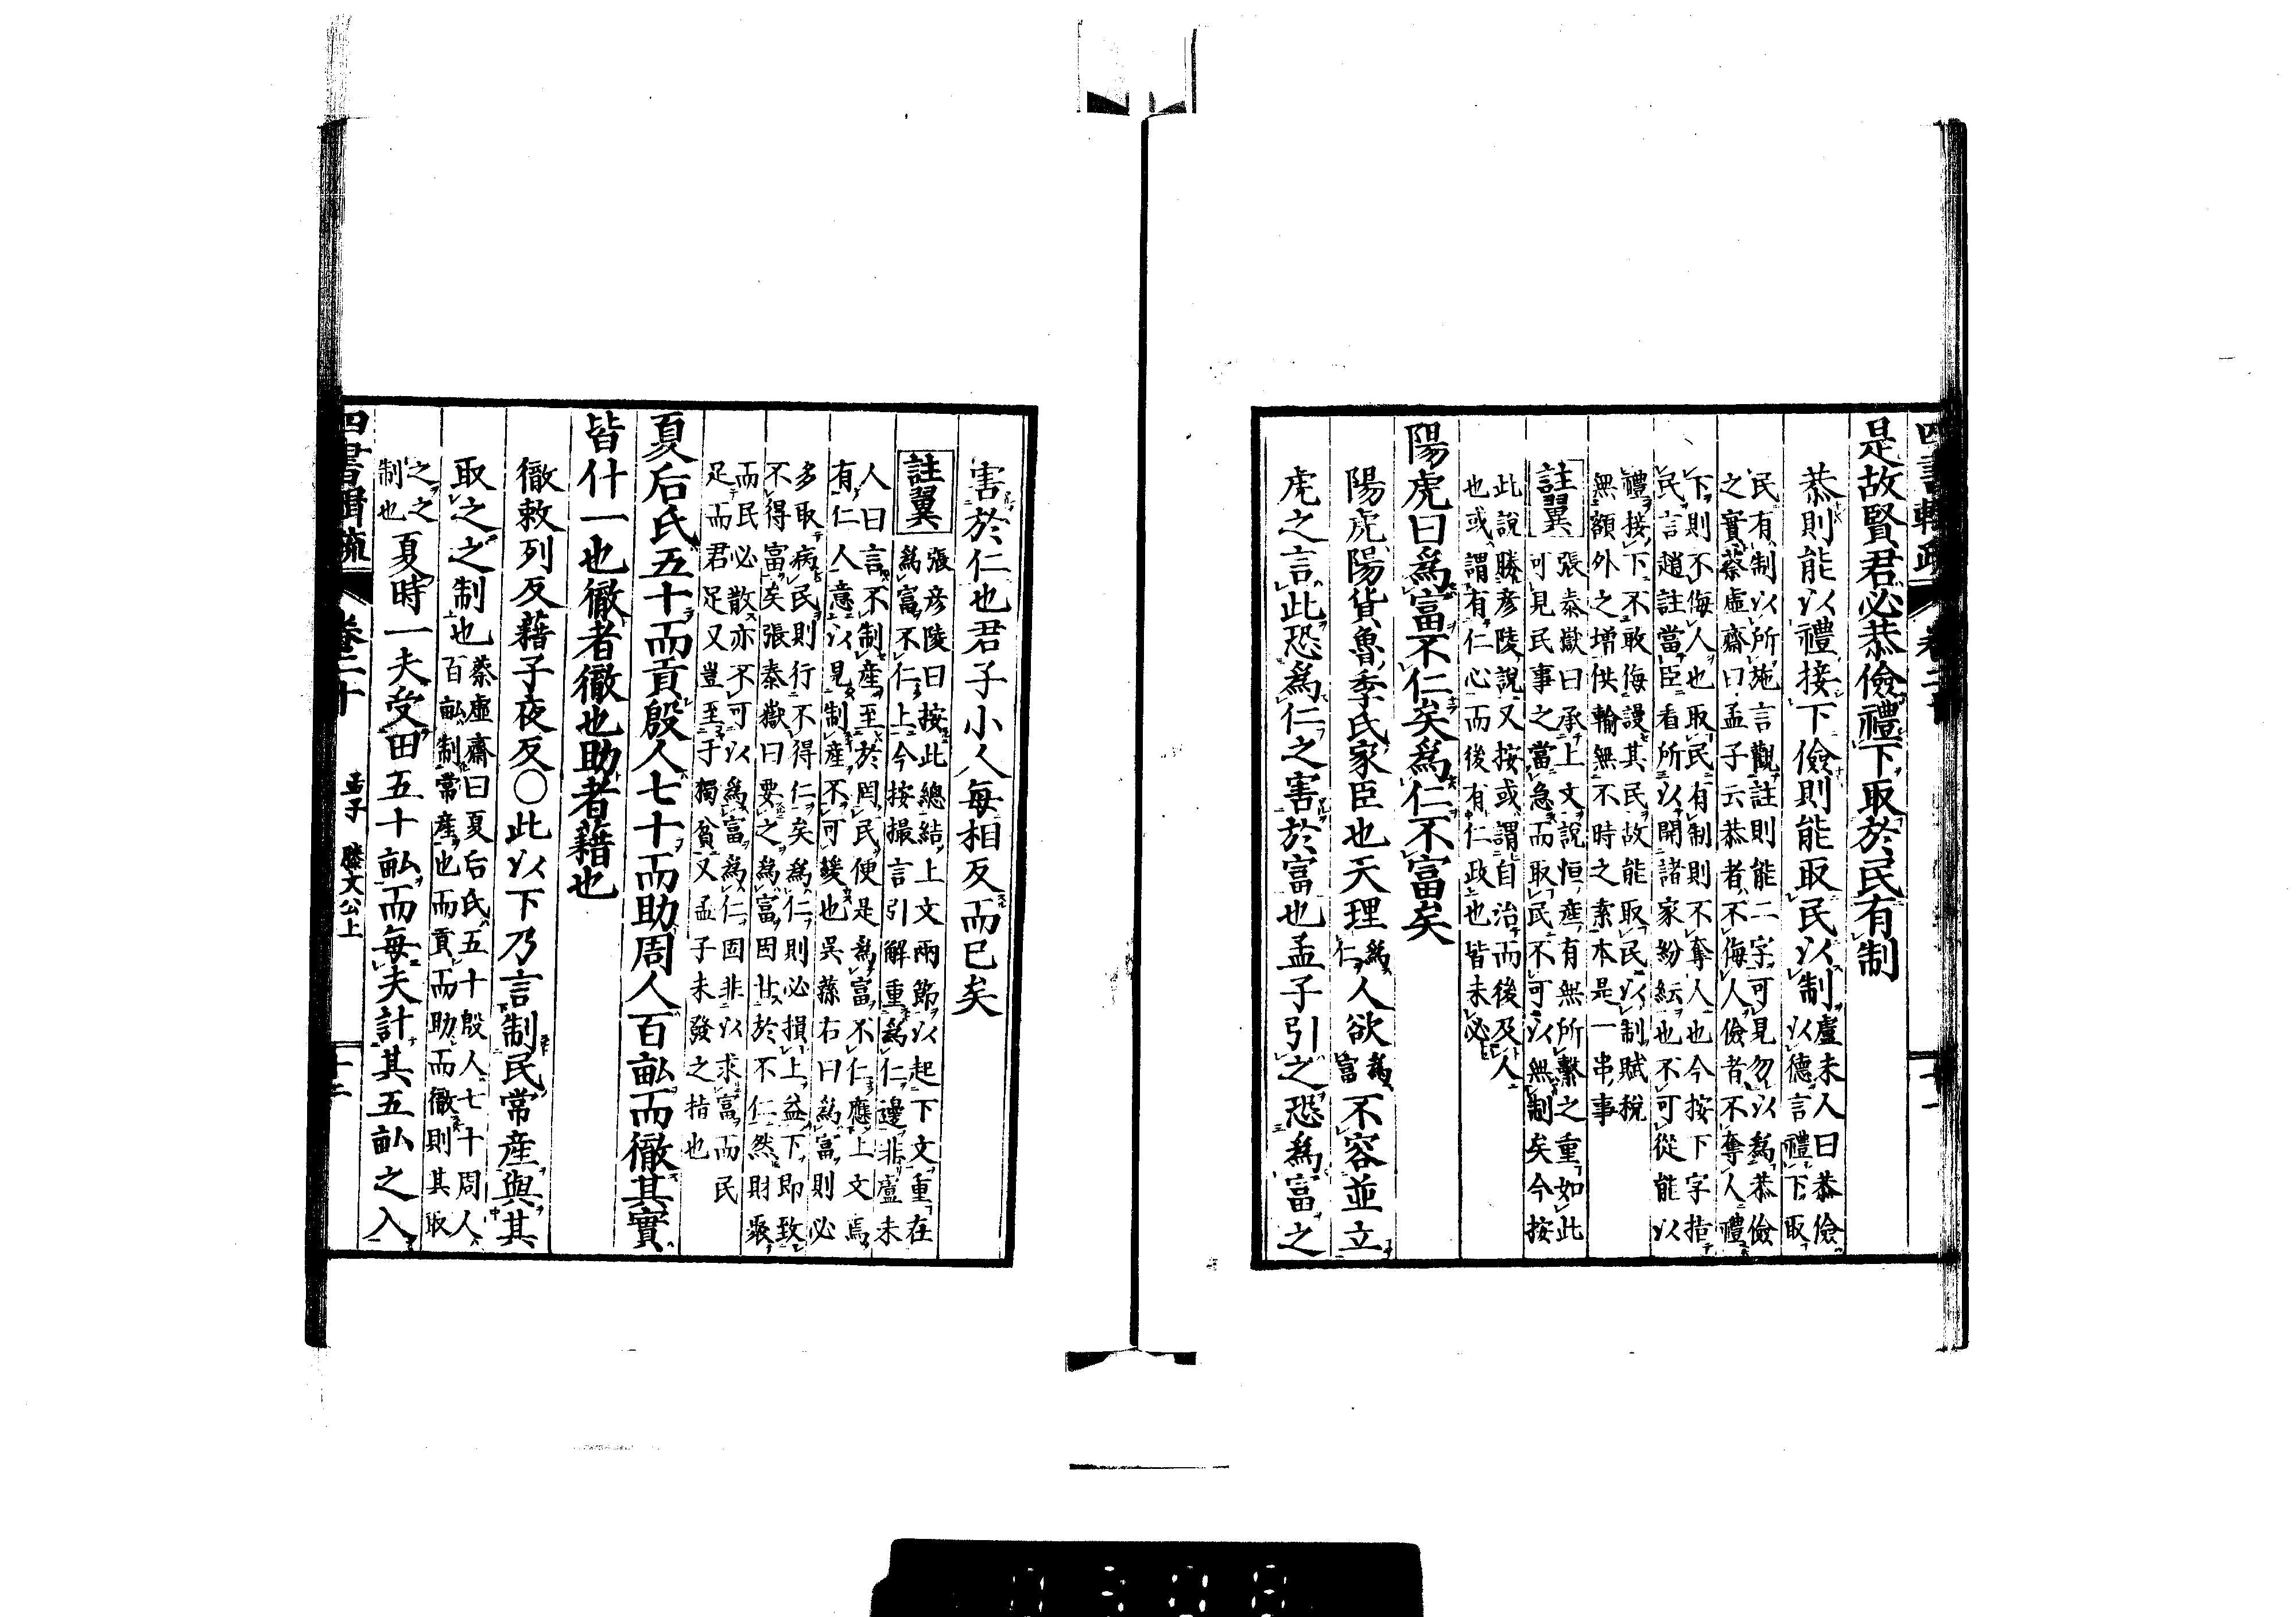 四書輯疏　卷二十　十一
是故賢君必恭儉禮下取於民有制
恭則能以禮接下儉則能取民以制盧未人曰恭儉
以德言禮下取
民有制以所施言觀註則能二字可見勿以爲恭儉
之實蔡虛齋曰孟子云恭者不侮人儉者不奪人禮
下則不侮人也取民有制則不奪人也今按下字指
民言趙註當臣看所以開諸家紛紜也不可從能以
禮接下不敢侮謾其民故能取民以制賦稅
無額外之增供輸無不時之索本是一串事
註翼張泰嶽曰承上文說恒產有無所繫之重如此
可見民事之當急而取民不可以無制矣今按
此說勝彦陵說又按或謂自治而後及人
也或謂有仁心而後有仁政也皆未必
陽虎曰爲富不仁矣爲仁不富矣
陽虎陽貨魯季氏家臣也天理爲仁人欲爲富不容並立
虎之言此恐爲仁之害於富也孟子引之恐爲富之
害於仁也君子小人每相反而已矣
註翼張彦陵曰按此總結上文兩節以起下文重在
爲富不仁上今按撮言引解重爲仁邊非盧未
人曰言不制產至於罔民便是爲富不仁應上文焉
有仁人意以見制產不可緩也吳蓀右曰爲富則必
多取病民則行不得仁矣爲仁則必損上益下即致
不得富矣張泰嶽曰要之爲富因甘於不仁然財聚
而民必散亦不可以爲富爲仁固非以求富而民
足而君足又豈至于獨貧又孟子未發之指也
夏后氏五十而貢殷人七十而助周人百畝而徹其實
皆什一也徹者徹也助者藉也
徹敕列反藉子夜反○此以下乃言制民常產與其
取之之制也蔡虛齋曰夏后氏五十殷人七十周人
百畝制常產也而貢而助而徹則其取
之之
制也夏時一夫受田五十畝而每夫計其五畝之入
四書輯疏　卷二十　孟子　滕文公上　十二